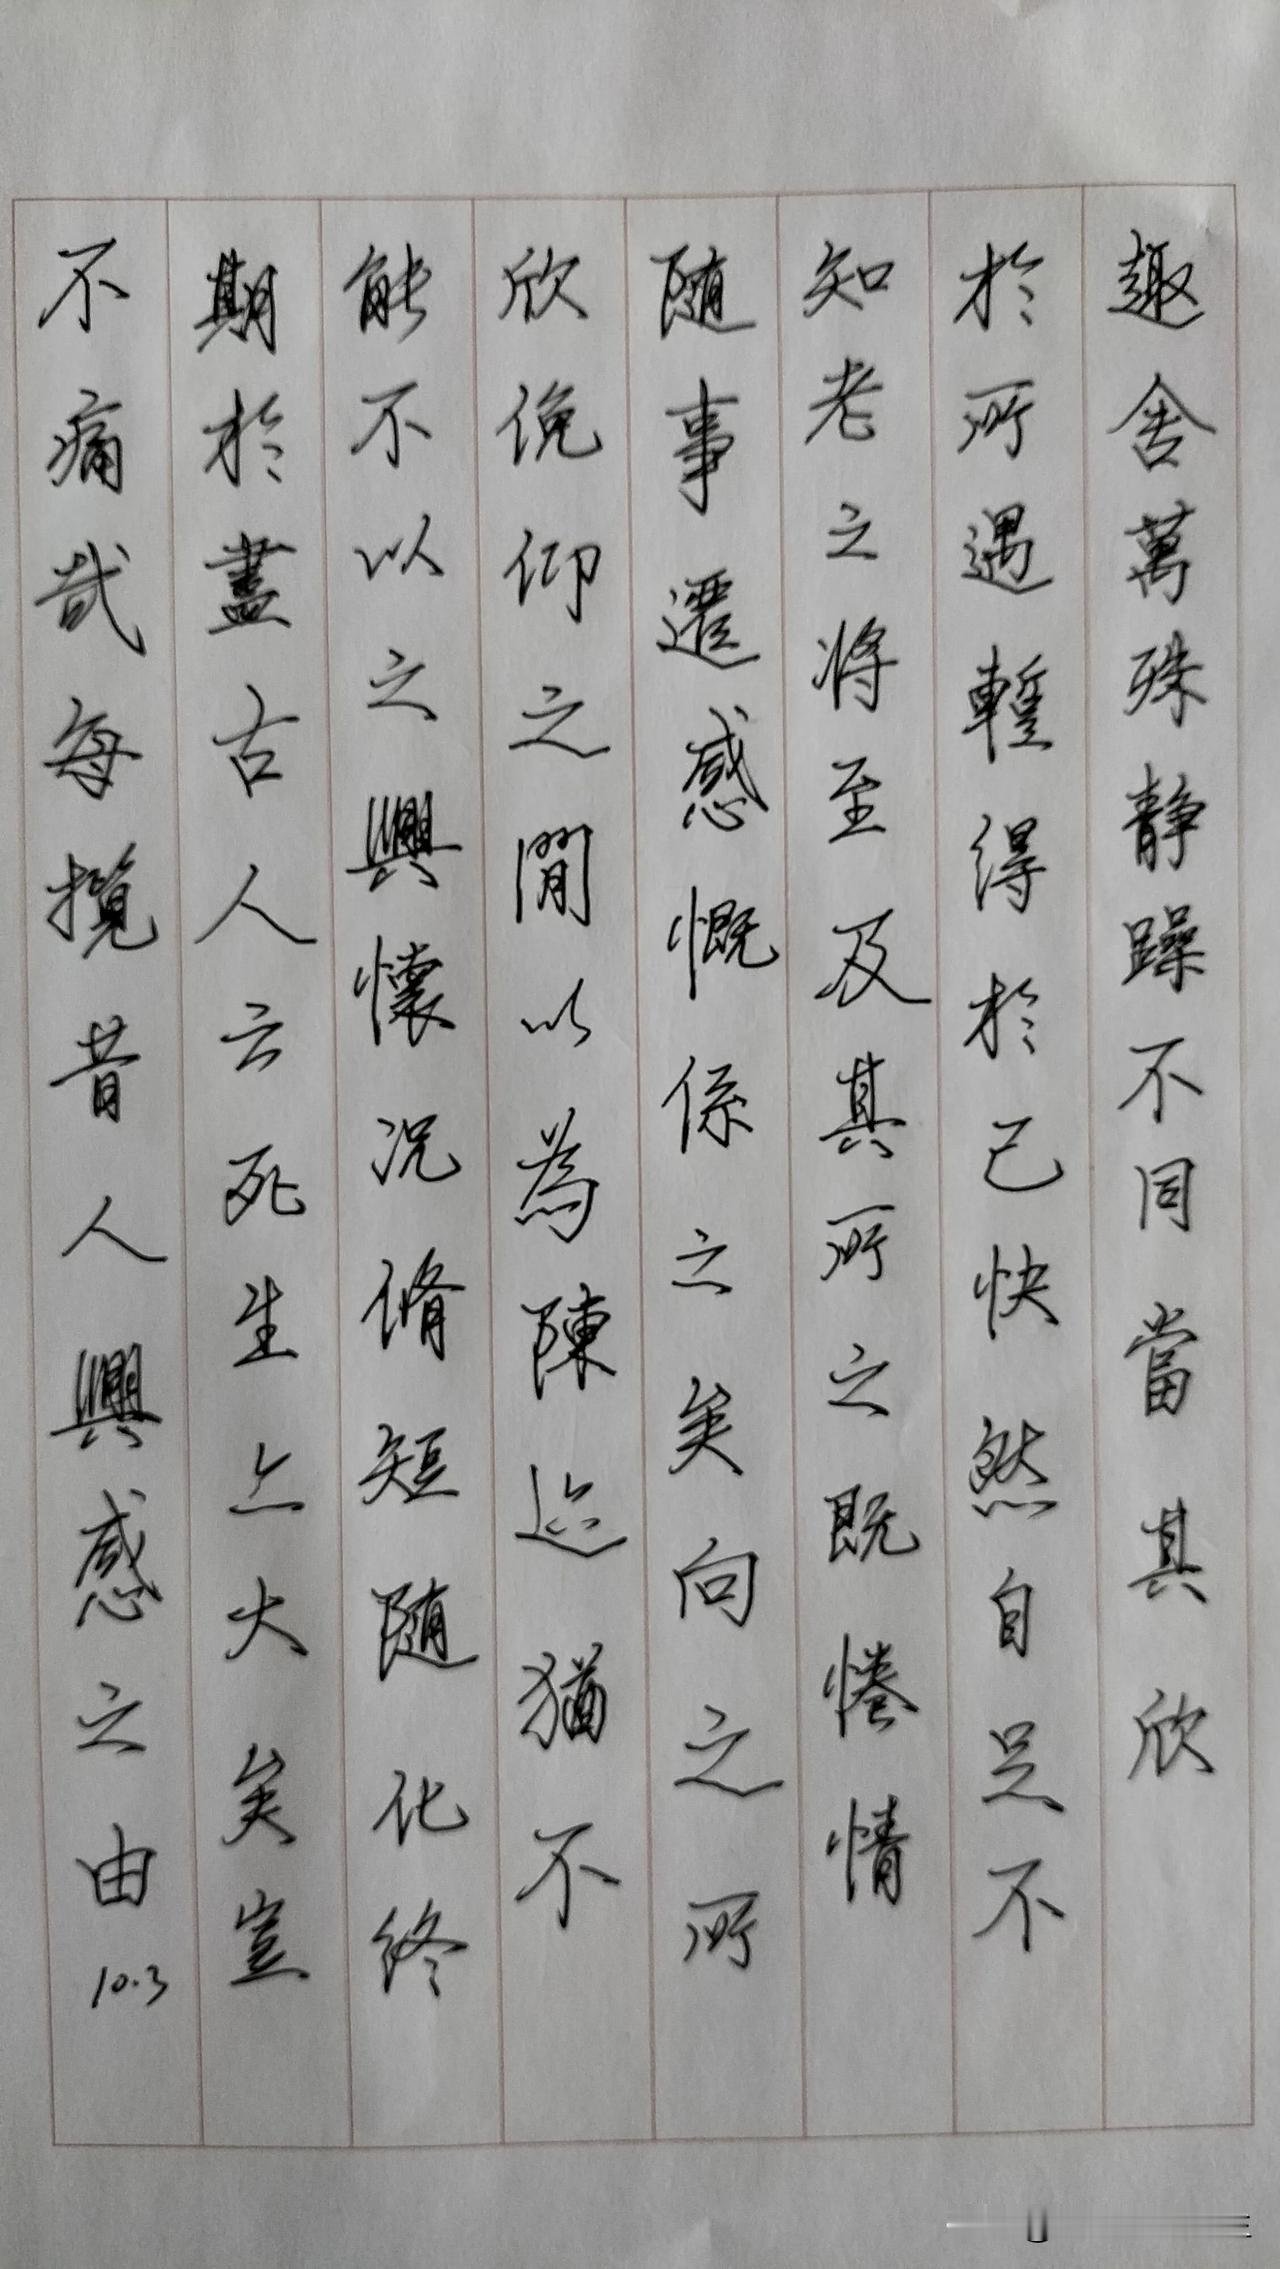 趣舍萬殊静躁不同當其欣
於所遇蹔得於己快然自足不
知老之将至及其所之既惓情
随事遷感慨係之矣向之所
欣俛仰之閒以為陳迹猶不
能不以之興懷况脩短随化終
期於盡古人云死生亦大矣豈
不痛哉每攬昔人興感之由
10.3